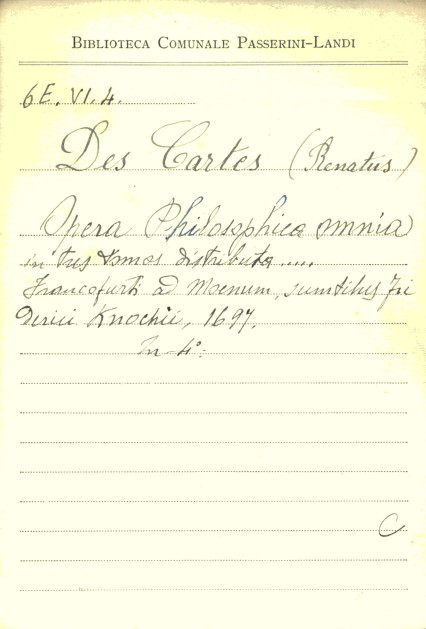 BIBLIOTECA COMUNALE PASSERINI-LANDI
6E. VI. 4.
Des Cartes (Renatus)
Opera Philosophica omnia
in tres tomos distributa .....
Francofurti ad Moenum, sumtibus Fri
derici Knochii, 1697.
In-4°.
C